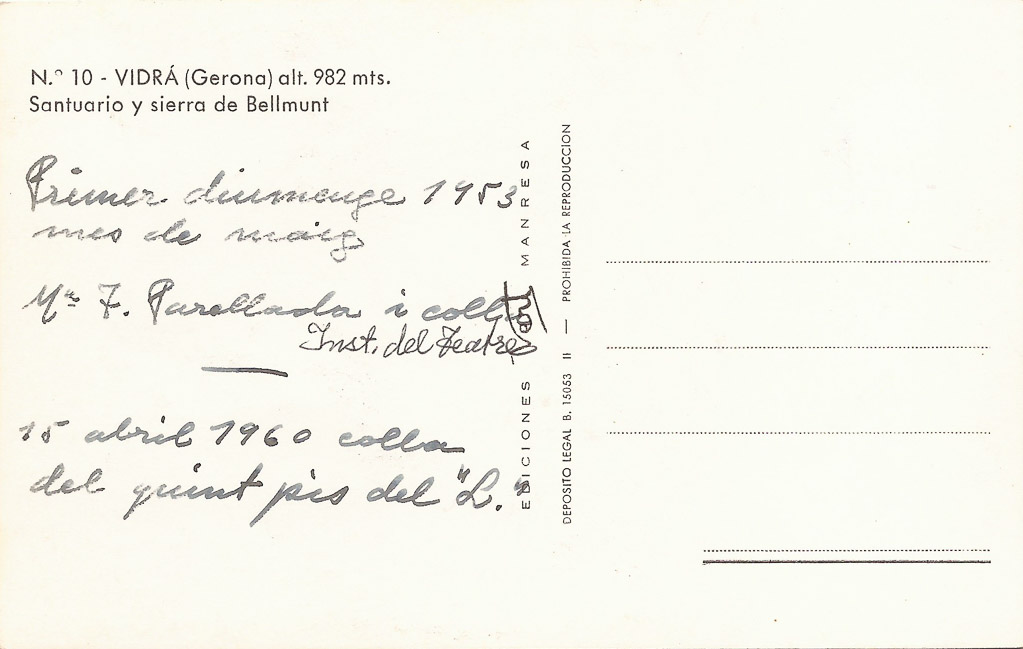 N.º 10 - VIDRÁ (Gerona) alt. 982 mts.
Santuario y sierra de Bellmunt
Primer diumenge 1953
mes de maig
Mª F. Parellada i colla
Inst. del Teatre
15 abril 1960 colla
del quint pis del "L."
EDICIONES MANRESA
DEPOSITO LEGAL B. 15053 II — PROHIBIDA LA REPRODUCCION